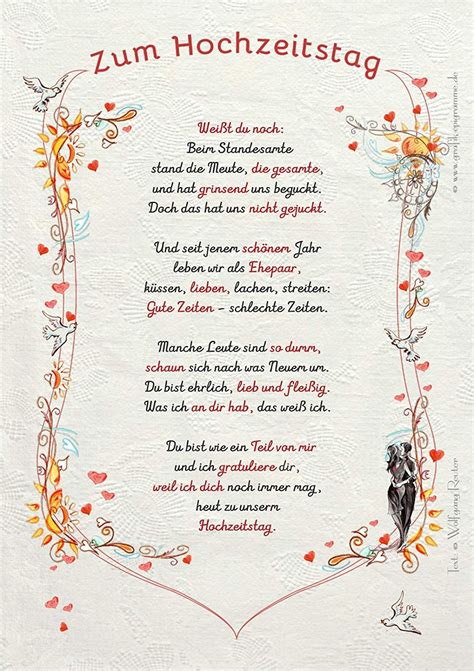 Zum Hochzeitstag
Weißt du noch:
Beim Standesamte
stand die Meute, die gesamte,
und hat grinsend uns beguckt.
Doch das hat uns nicht gejuckt.
Und seit jenem schönem Jahr
leben wir als Ehepaar,
küssen, lieben, lachen, streiten:
Gute Zeiten – schlechte Zeiten.
Manche Leute sind so dumm,
schaun sich nach was Neuem um.
Du bist ehrlich, lieb und fleißig.
Was ich an dir hab, das weiß ich.
Du bist wie ein Teil von mir
und ich gratuliere dir,
weil ich dich noch immer mag,
heut zu unserm
Hochzeitstag.
Text: © Wolfgang Reuter